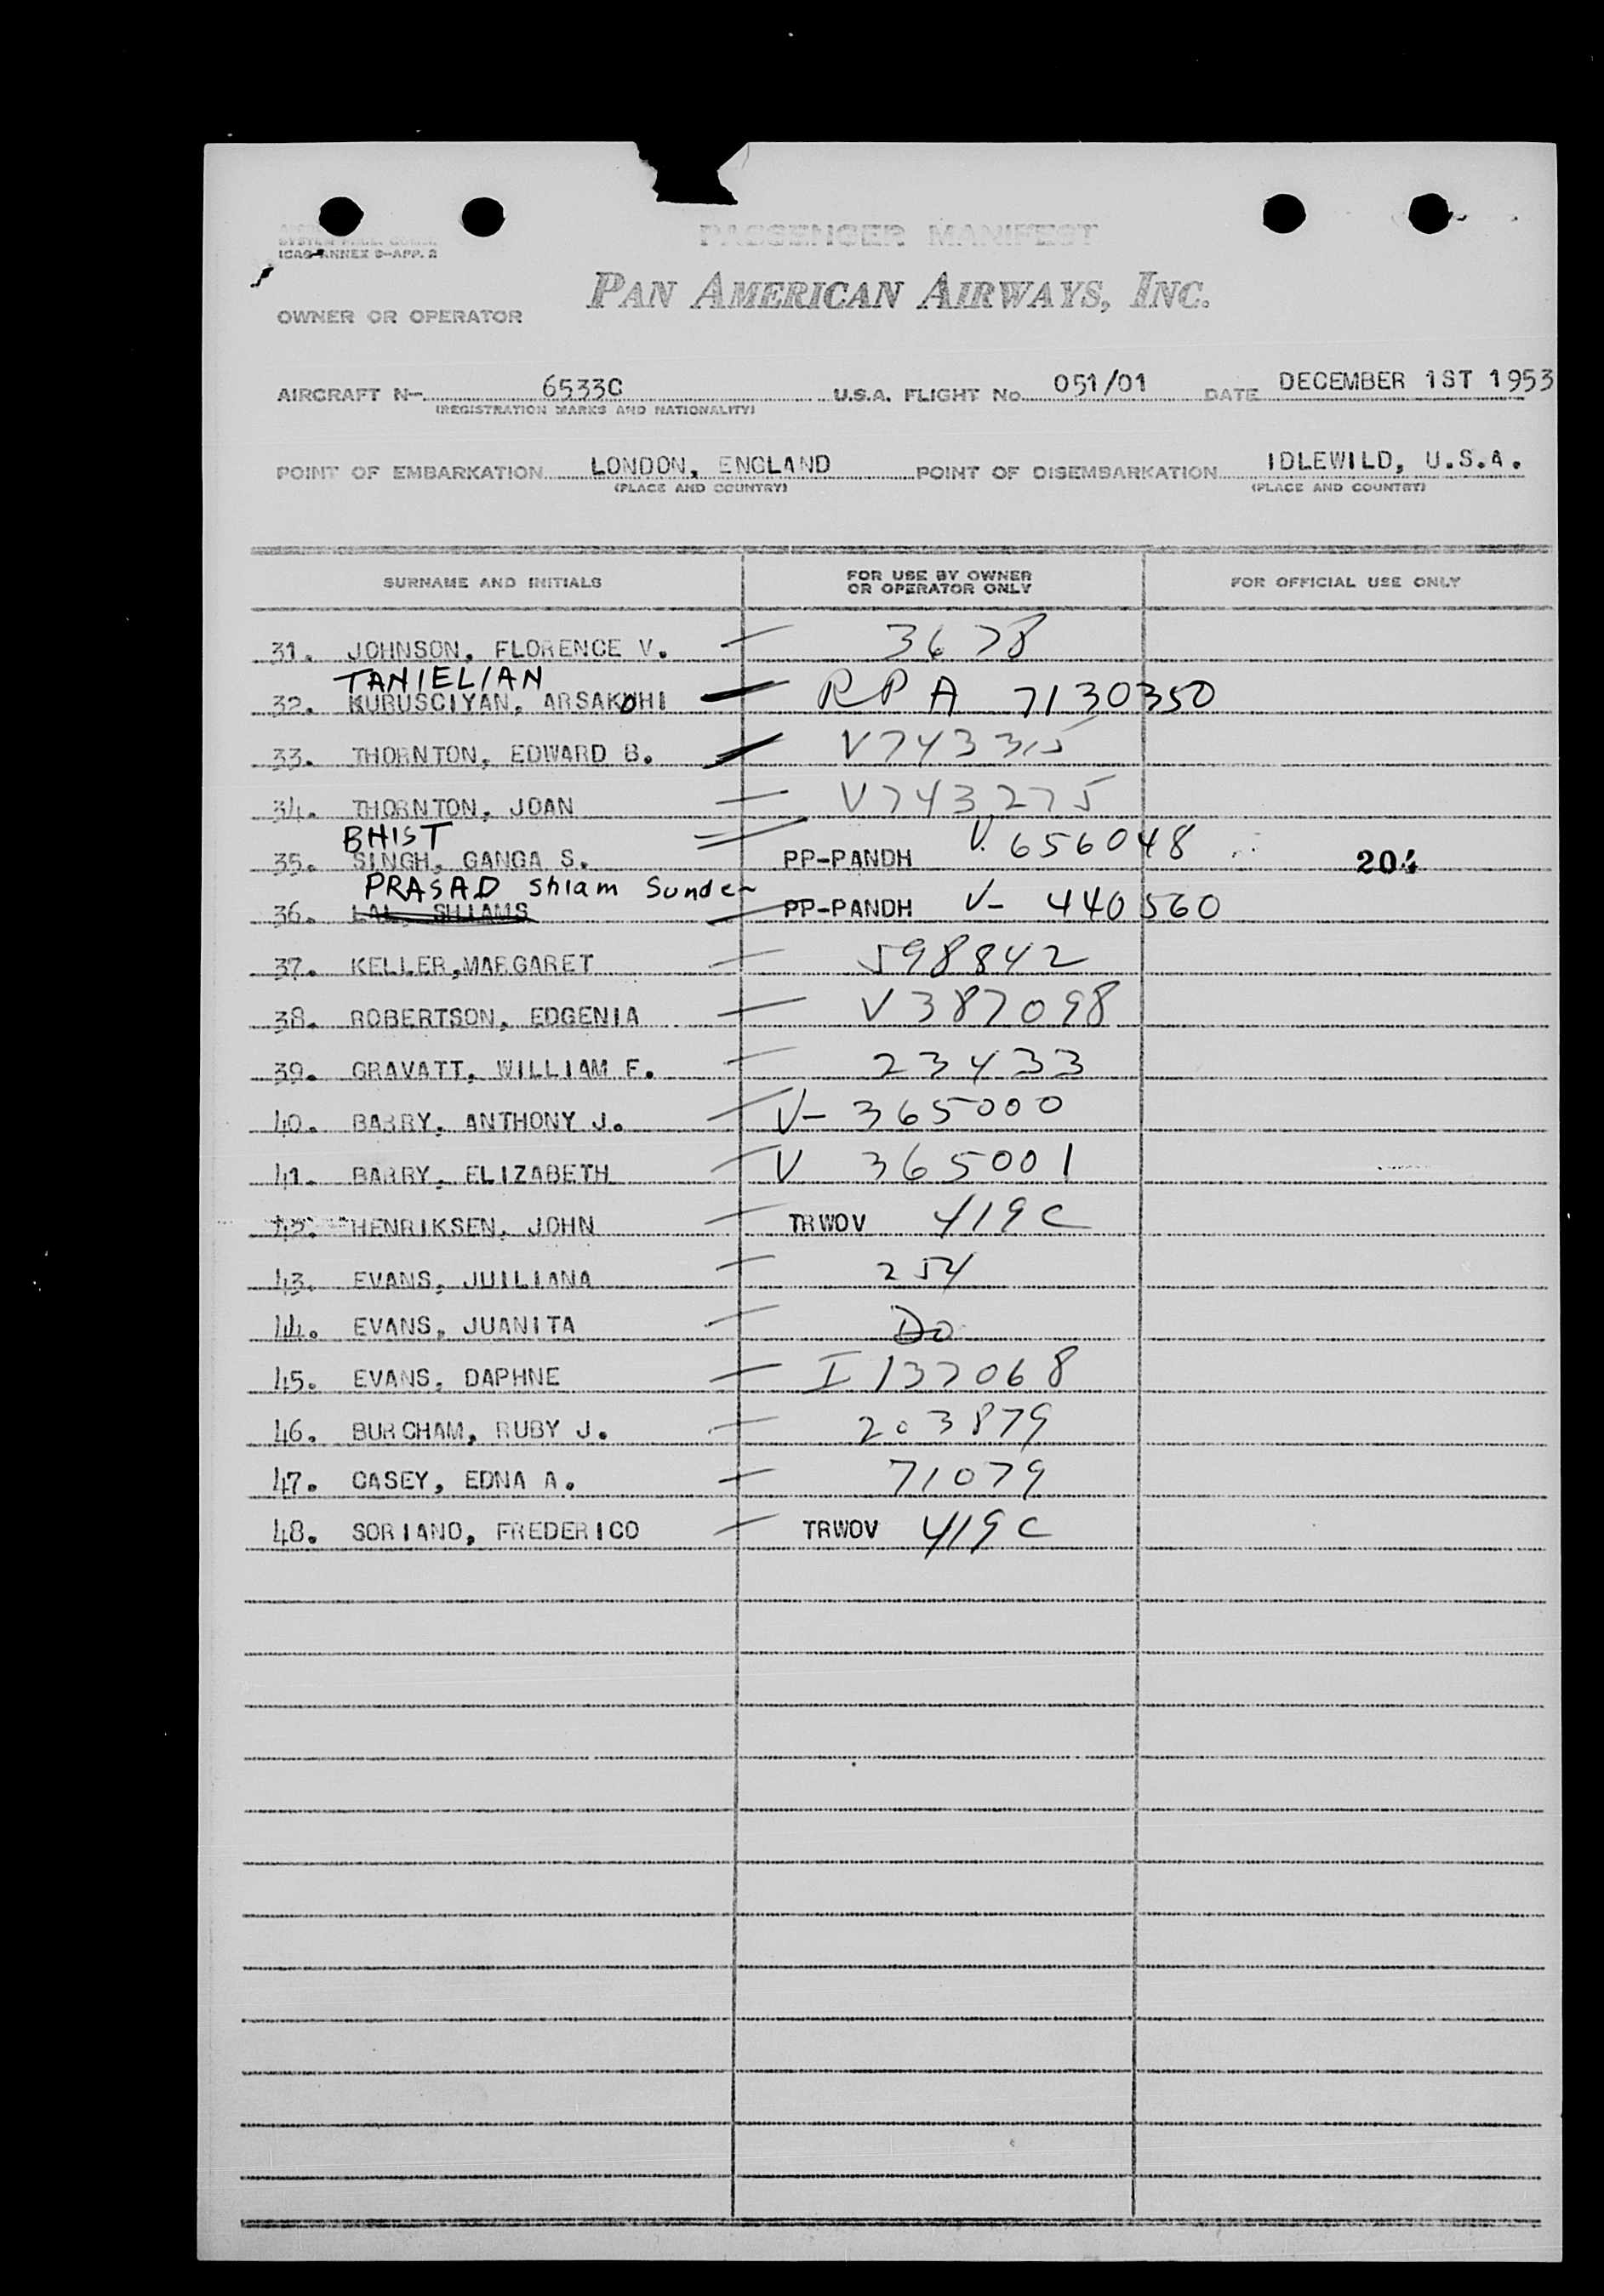 PASSENGER MANIFEST
ICAO ANNEX 9-APP. 2
PAN AMERICAN AIRWAYS, INC.
OWNER OR OPERATOR
AIRCRAFT N- 6533C U.S.A. FLIGHT No. 051/01 DATE DECEMBER 1ST 1953
(REGISTRATION MARKS AND NATIONALITY)
POINT OF EMBARKATION LONDON, ENGLAND POINT OF DISEMBARKATION IDLEWILD, U.S.A.
(PLACE AND COUNTRY) (PLACE AND COUNTRY)
SURNAME AND INITIALS FOR USE BY OWNER OR OPERATOR ONLY FOR OFFICIAL USE ONLY
31. JOHNSON, FLORENCE V. 3678
TANIELIAN
32. KURUSCIYAN, ARSAKOHI RPA 7130350
33. THORNTON, EDWARD B. V743315
34. THORNTON, JOAN V743275
BHIST
35. SINGH, GANGA S. PP-PANDH V. 656048 204
PRASAD Shiam Sunder
36. LAL, SHIAMS PP-PANDH V- 440560
37. KELLER,MARGARET 598842
38. ROBERTSON, EDGENIA V387098
39. GRAVATT, WILLIAM F. 23433
40. BARRY, ANTHONY J. V- 365000
41. BARRY, ELIZABETH V 365001
42. HENRIKSEN, JOHN TRWOV 419C
43. EVANS, JUILIANA 254
44. EVANS, JUANITA Do
45. EVANS, DAPHNE I 137068
46. BURCHAM, RUBY J. 203879
47. CASEY, EDNA A. 71079
48. SORIANO, FREDERICO TRWOV 419C